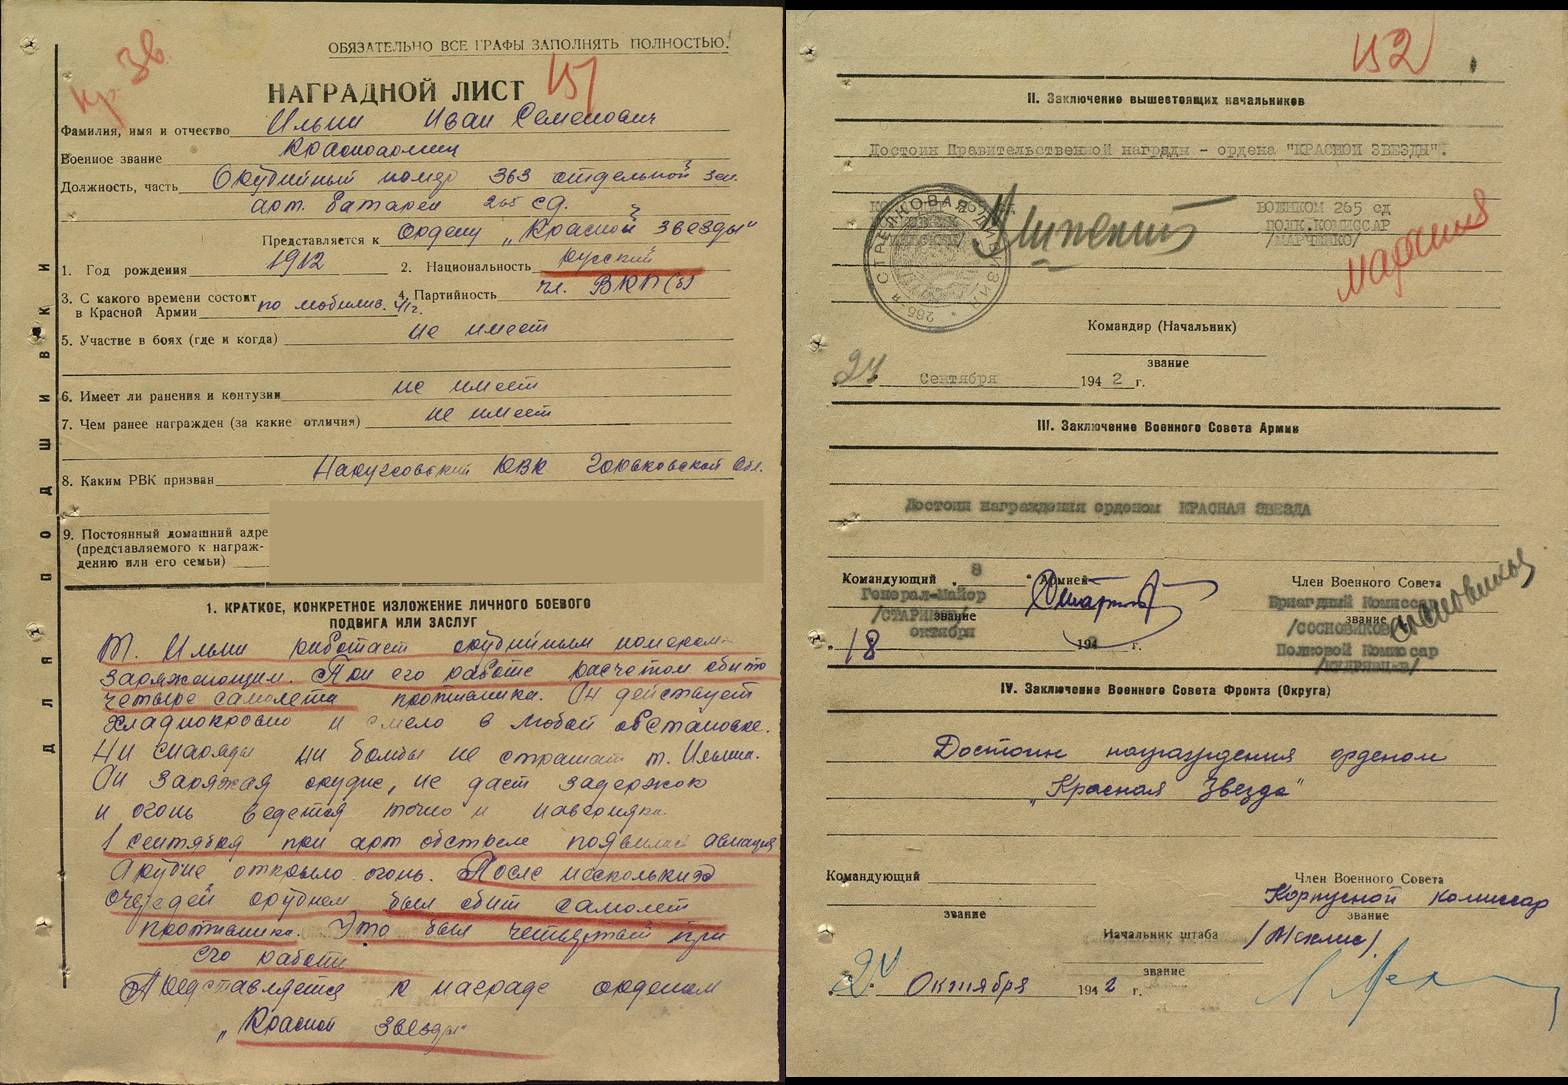 Кр. Зв.
ОБЯЗАТЕЛЬНО ВСЕ ГРАФЫ ЗАПОЛНЯТЬ ПОЛНОСТЬЮ.
НАГРАДНОЙ ЛИСТ 151
Фамилия, имя и отчество Ильин Иван Семенович
Военное звание Красноармеец
Должность, часть Орудийный номер 363 отдельной зен.
арт. батареи 265 сд.
Представляется к Ордену „Красной звезды"
1. Год рождения 1912 2. Национальность русский
3. С какого времени состоит в Красной Армии по мобилиз. 41г. 4. Партийность чл. ВКП(б)
5. Участие в боях (где и когда) не имеет
6. Имеет ли ранения и контузии не имеет
7. Чем ранее награжден (за какие отличия) не имеет
8. Каким РВК призван РВК Горьковской Обл.
9. Постоянный домашний адре
(представляемого к награж-
дению или его семьи)
ДЛЯ ПОДШИВКИ
1. КРАТКОЕ, КОНКРЕТНОЕ ИЗЛОЖЕНИЕ ЛИЧНОГО БОЕВОГО
ПОДВИГА ИЛИ ЗАСЛУГ
Т. Ильин работает орудийным номером
заряжающим. При его работе расчетом сбито
четыре самолета противника. Он действует
хладнокровно и смело в любой обстановке.
Ни снаряды ни бомбы не страшат т. Ильина.
Он заряжая орудие, не дает задержок
и огонь ведется точно и наверняка.
1 сентября при арт обстреле появилась авиация
Орудие открыло огонь. После нескольких
очередей орудием был сбит самолет
противника. Это был четвертый при
его работе
Представляется к награде орденом
„Красной звезды"
152
II. Заключение вышестоящих начальников
Достоин Правительственной награды - ордена "КРАСНОЙ ЗВЕЗДЫ".
ВОЕНКОМ 265 сд
ПОЛК.КОМИССАР
/МАРЧЕНКО/
СТРЕЛКОВАЯ ДИВИЗИЯ
Командир (Начальник)
звание
"24" Сентября 1942 г.
III. Заключение Военного Совета Армии
Достоин награждения орденом КРАСНАЯ ЗВЕЗДА
Командующий "8" Армией Член Военного Совета
Генерал-Майор Бригадный Комиссар
/СТАРИКОВ/ звание звание
/СОСНОВИКОВ/
18 октября 194 г. Полковой Комиссар
/КУДРЯВЦЕВ/
IV. Заключение Военного Совета Фронта (Округа)
Достоин награждения орденом
„Красная Звезда"
Командующий Член Военного Совета
звание Корпусной комиссар
звание
Начальник штаба /Мехлис/
звание
Октября 1942 г.